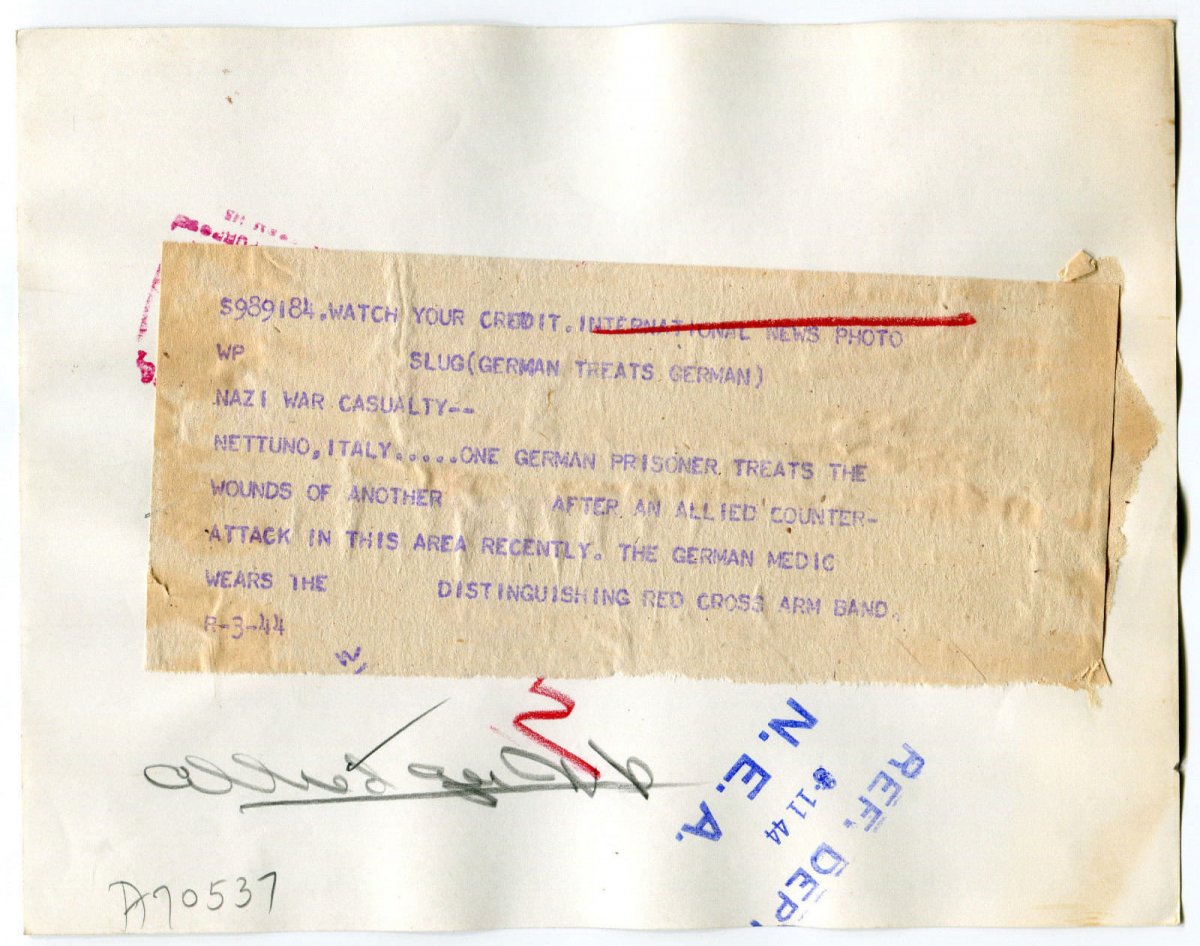 PURPOSE
S989184.WATCH YOUR CREDIT.INTERNATIONAL NEWS PHOTO
WP SLUG(GERMAN TREATS GERMAN)
NAZI WAR CASUALTY--
NETTUNO,ITALY.....ONE GERMAN PRISONER TREATS THE
WOUNDS OF ANOTHER AFTER AN ALLIED COUNTER-
ATTACK IN THIS AREA RECENTLY. THE GERMAN MEDIC
WEARS THE DISTINGUISHING RED CROSS ARM BAND.
-3-44
N. E. A.
11 44
REF. DEPT
A70537